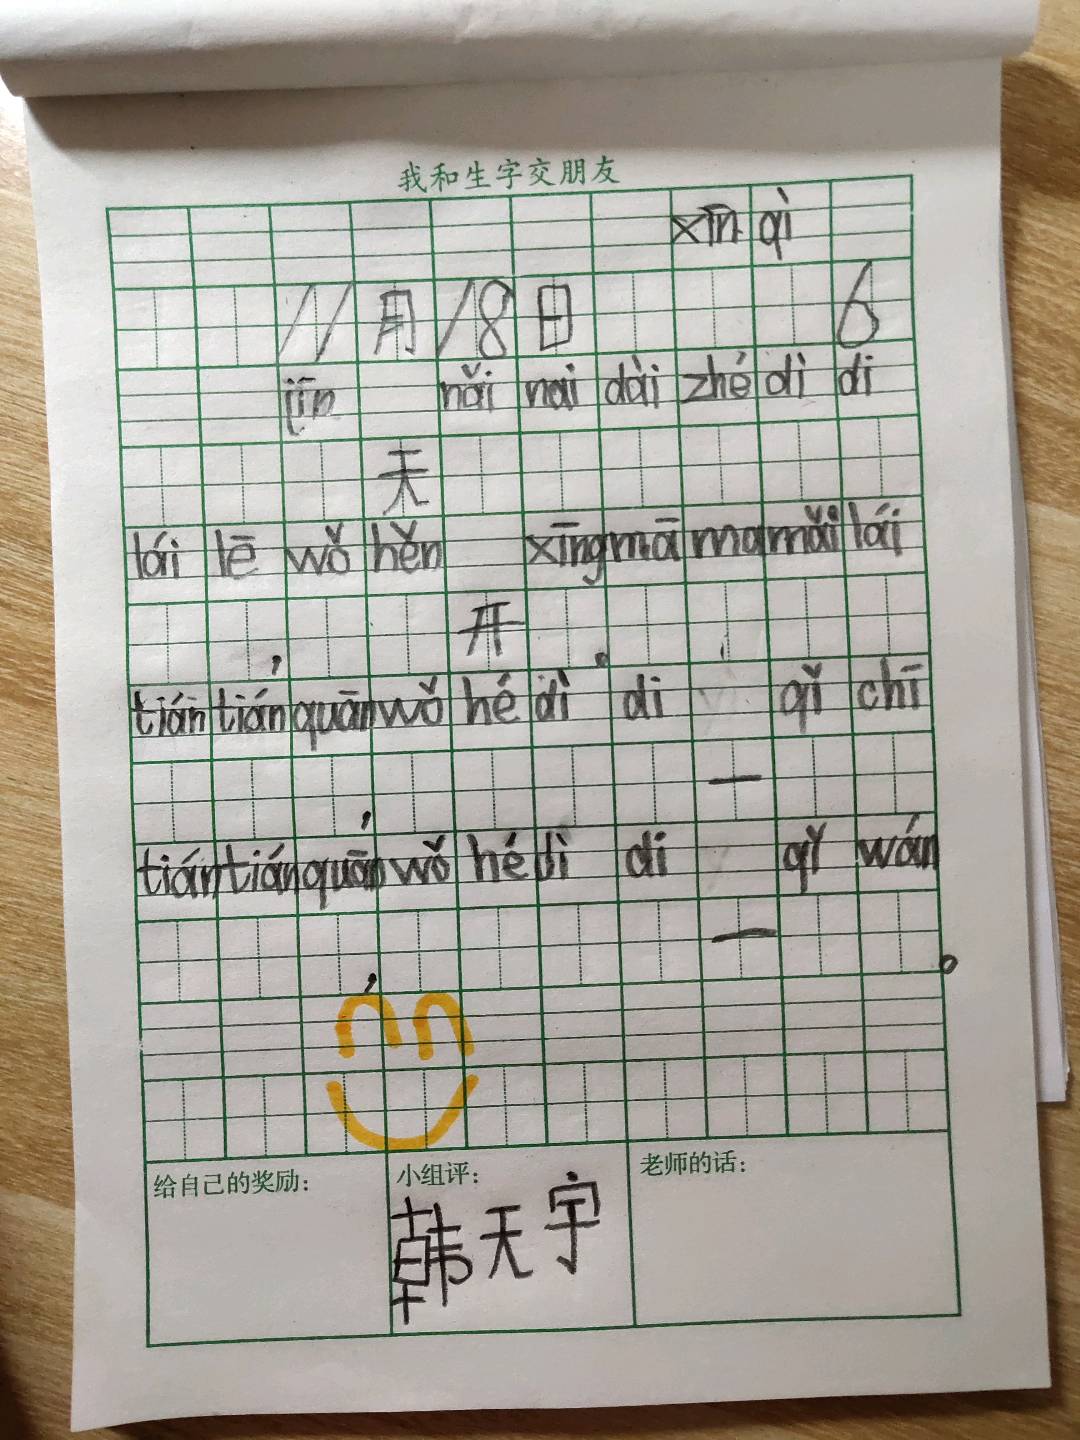 我和生字交朋友
xīn qì
11月18日 6
jīn nǎi nai dài zhé dì di
天
lái lē wǒ hěn xīng mā ma mǎi lái
, 开 。
tián tián quān wǒ hé dì di qǐ chī
, 一
tián tián quān wǒ hé dì di qǐ wán
, 一 。
给自己的奖励: 小组评: 老师的话:
韩天宇